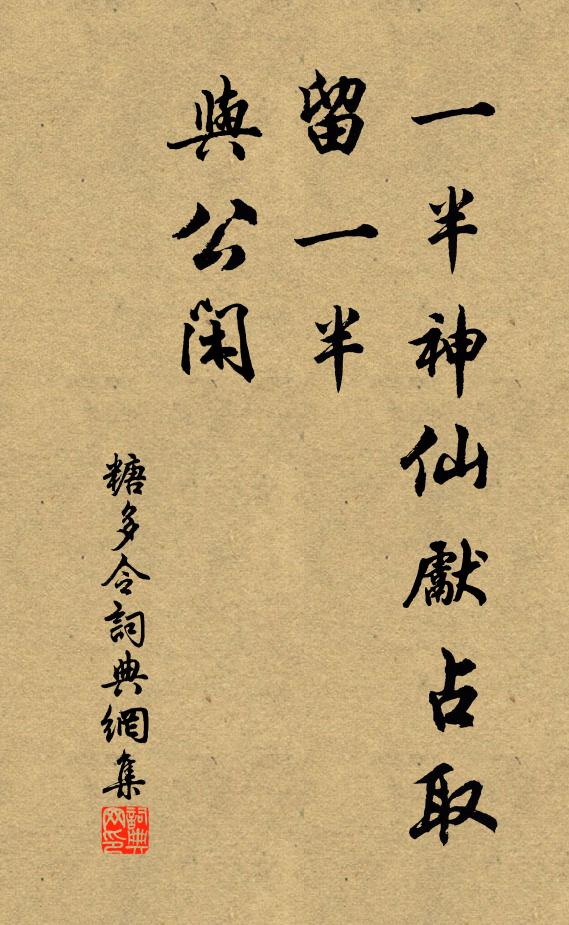 一半神仙獻占取
留一半
與公閑
糖多令詞典網集
詞典
网印